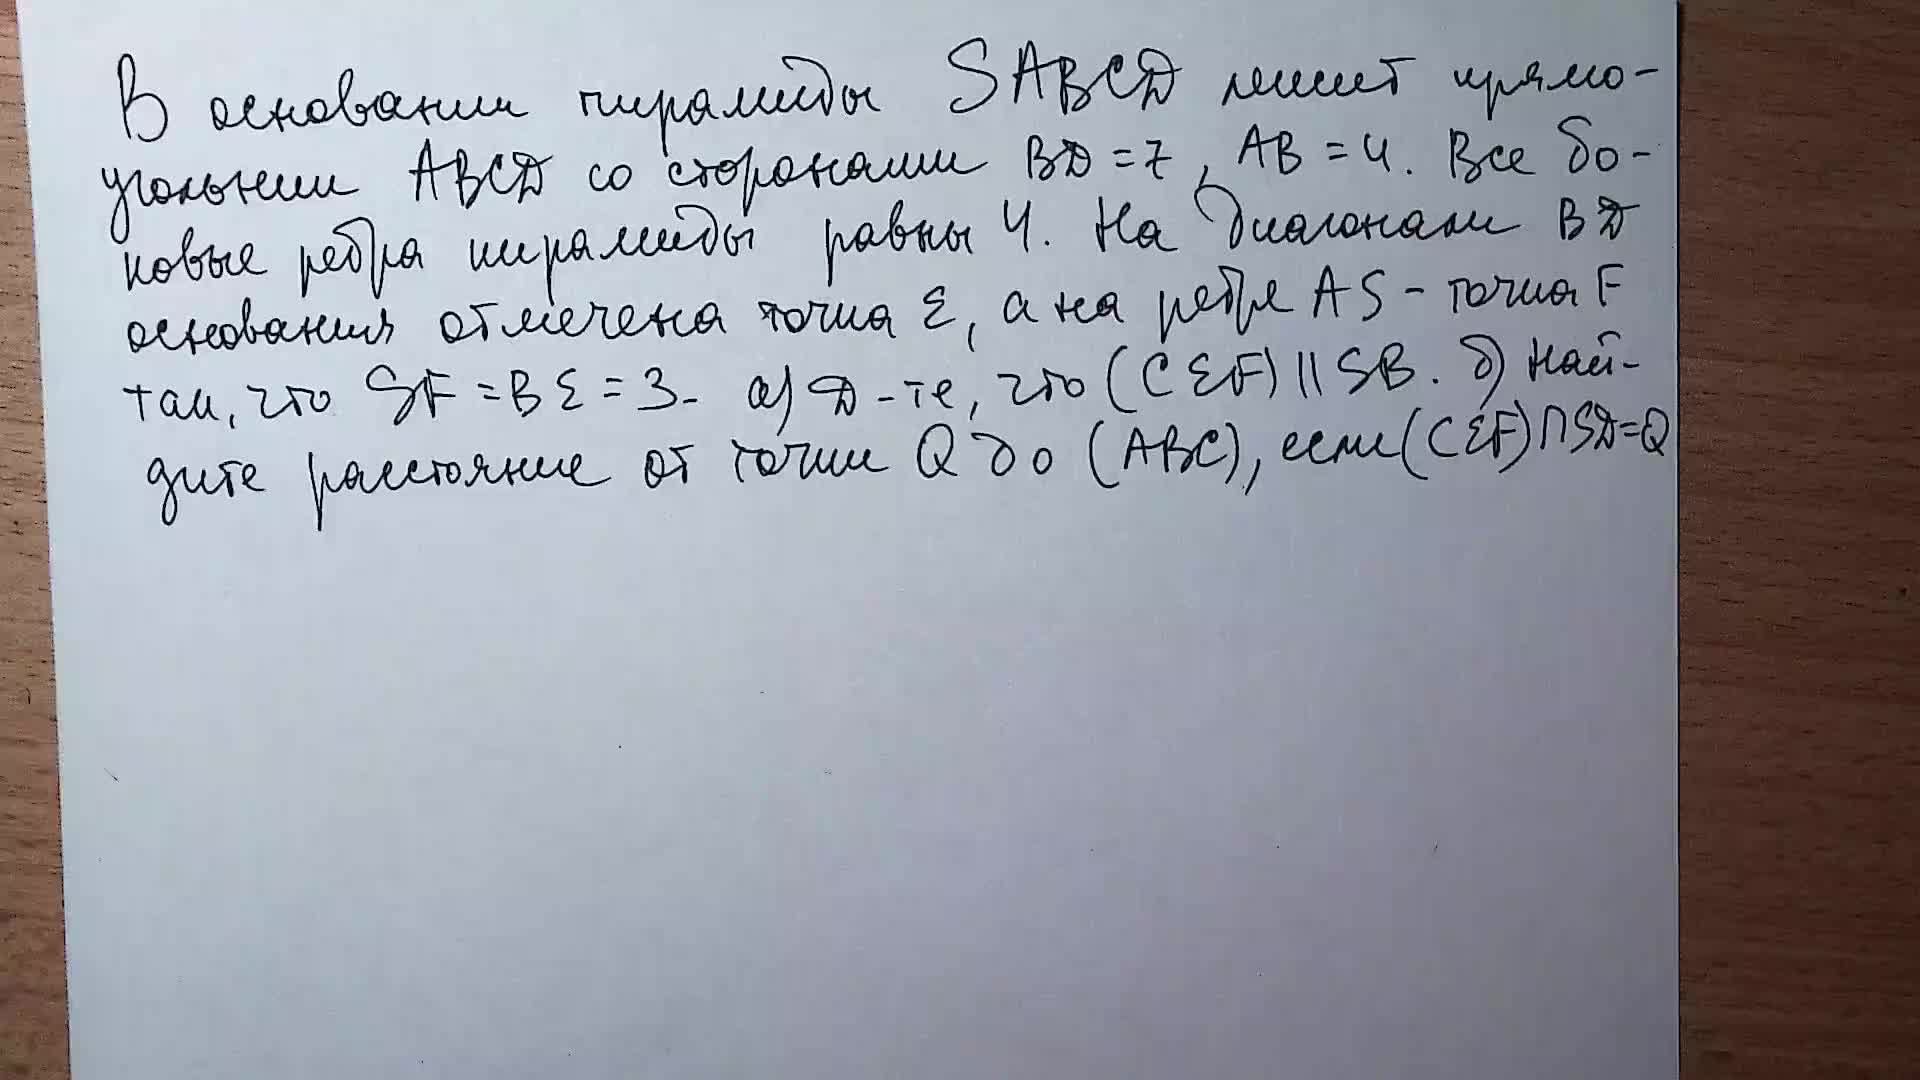 В основании пирамиды SABCD лежит прямо-
угольник ABCD со сторонами BD = 7, AB = 4. Все бо-
ковые ребра пирамиды равны 4. На диагонали BD
основания отмечена точка E, а на ребре AS - точка F
так, что SF = BE = 3. а) Д-те, что (CEF) || SB. б) Най-
дите расстояние от точки Q до (ABC), если (CEF)∩SD=Q